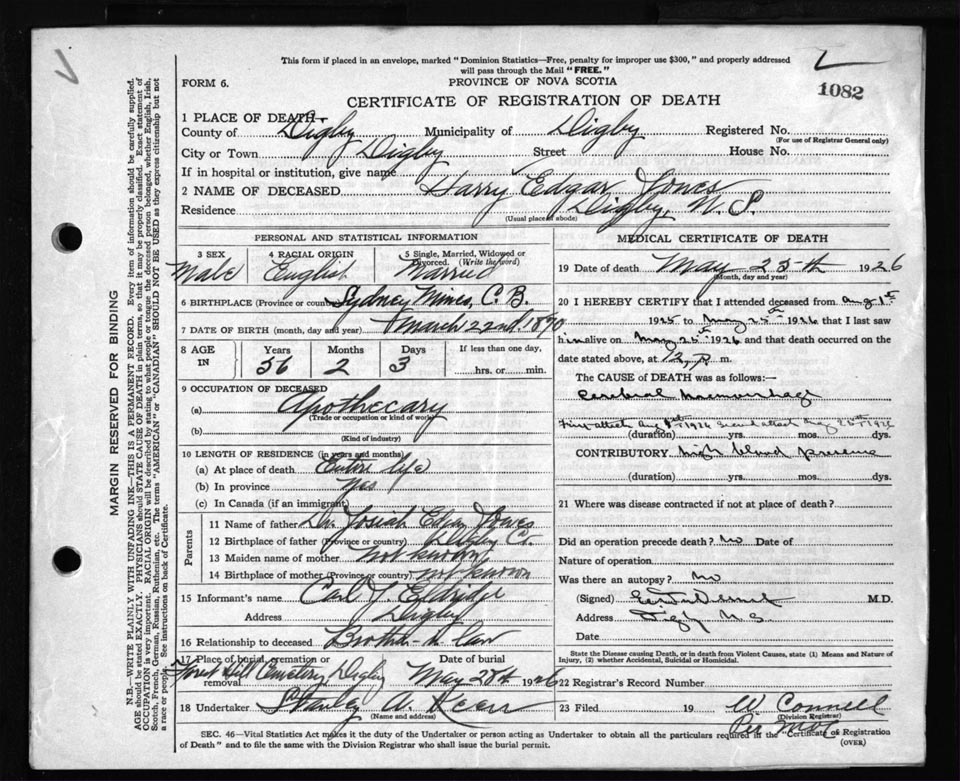 This form if placed in an envelope, marked "Dominion Statistics—Free, penalty for improper use $300," and properly addressed
will pass through the Mail "FREE."
FORM 6.
PROVINCE OF NOVA SCOTIA
1082
CERTIFICATE OF REGISTRATION OF DEATH
1 PLACE OF DEATH—
County of Digby Municipality of Digby Registered No.
(For use of Registrar General only)
City or Town Digby Street House No.
If in hospital or institution, give name
2 NAME OF DECEASED Harry Edgar Jones
Residence Digby, N. S.
(Usual place of abode)
PERSONAL AND STATISTICAL INFORMATION
3 SEX 4 RACIAL ORIGIN 5 Single, Married, Widowed or Divorced. (Write the word)
Male English Married
6 BIRTHPLACE (Province or country) Sydney Mines, C. B.
7 DATE OF BIRTH (month, day and year) March 22nd. 1870
8 AGE IN Years Months Days If less than one day,
56 2 3 hrs. or min.
9 OCCUPATION OF DECEASED
(a) Apothecary
(Trade or occupation or kind of work)
(b)
(Kind of industry)
10 LENGTH OF RESIDENCE (in years and months)
(a) At place of death Entire life
(b) In province Yes
(c) In Canada (if an immigrant)
Parents
11 Name of father Dr. Josiah Edgar Jones
12 Birthplace of father (Province or country) Digby Co.
13 Maiden name of mother Not known
14 Birthplace of mother (Province or country) not known
15 Informant's name Carl Eldridge
Address Digby
16 Relationship to deceased Brother-in law
17 Place of burial, cremation or removal Forest Hill Cemetery Digby Date of burial May 28th 1926
18 Undertaker Stanley A.
(Name and address)
MEDICAL CERTIFICATE OF DEATH
19 Date of death May 25th 1926
(Month, day and year)
20 I HEREBY CERTIFY that I attended deceased from Aug 1st
1925 to May 25th 1926 that I last saw
him alive on May 25th 1926 and that death occurred on the
date stated above, at 12, P. m.
The CAUSE of DEATH was as follows:—
Cerebral Haemorrhage
First attack Aug 1st Second attack May 25th 1926
(duration) yrs. mos. dys.
CONTRIBUTORY high blood pressure
(duration) yrs. mos. dys.
21 Where was disease contracted if not at place of death?
Did an operation precede death? no Date of
Nature of operation
Was there an autopsy? no
(Signed) M.D.
Address Digby N S
Date
State the Disease causing Death, or in death from Violent Causes, state (1) Means and Nature of
Injury, (2) whether Accidental, Suicidal or Homicidal.
22 Registrar's Record Number
23 Filed 19 W Connell
(Division Registrar)
Per
SEC. 46—Vital Statistics Act makes it the duty of the Undertaker or person acting as Undertaker to obtain all the particulars required in the "Certificate of Registration
of Death" and to file the same with the Division Registrar who shall issue the burial permit.
(OVER)
MARGIN RESERVED FOR BINDING
N.B.—WRITE PLAINLY WITH UNFADING INK—THIS IS A PERMANENT RECORD. Every item of information should be carefully supplied.
AGE should be stated EXACTLY. PHYSICIANS should STATE CAUSE OF DEATH in plain terms, so that it may be properly classified. Exact statement of
OCCUPATION is very important. RACIAL ORIGIN will be described by stating to what people or tongue the deceased person belonged, whether English, Irish,
Scotch, French, German, Russian, Ruthenian, etc. The terms "AMERICAN" or "CANADIAN" SHOULD NOT BE USED as they express citizenship but not
a race or people. See instructions on back of Certificate.